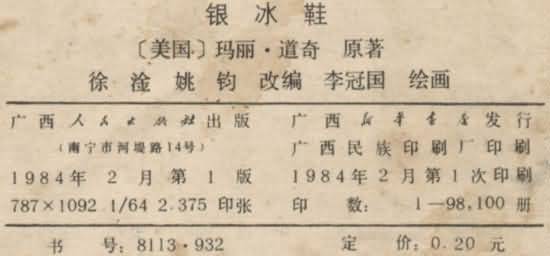 银冰鞋
〔美国〕玛丽·道奇 原著
徐淦 姚钧 改编 李冠国 绘画
广西人民出版社出版 广西新华书店发行
(南宁市河堤路14号) 广西民族印刷厂印刷
1984年 2月第1版 1984年2月第1次印刷
787×1092 1/64 2.375印张 印数: 1—98,100册
书号: 8113·932 定价: 0.20元